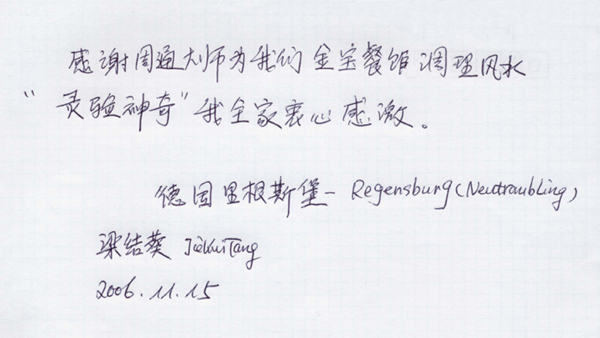 感谢周通大师为我们金宝餐馆调理风水
“灵验神奇”我全家衷心感激。
德国里根斯堡 - Regensburg (Neutraubling)
梁结葵 JieKui Tang
2006.11.15